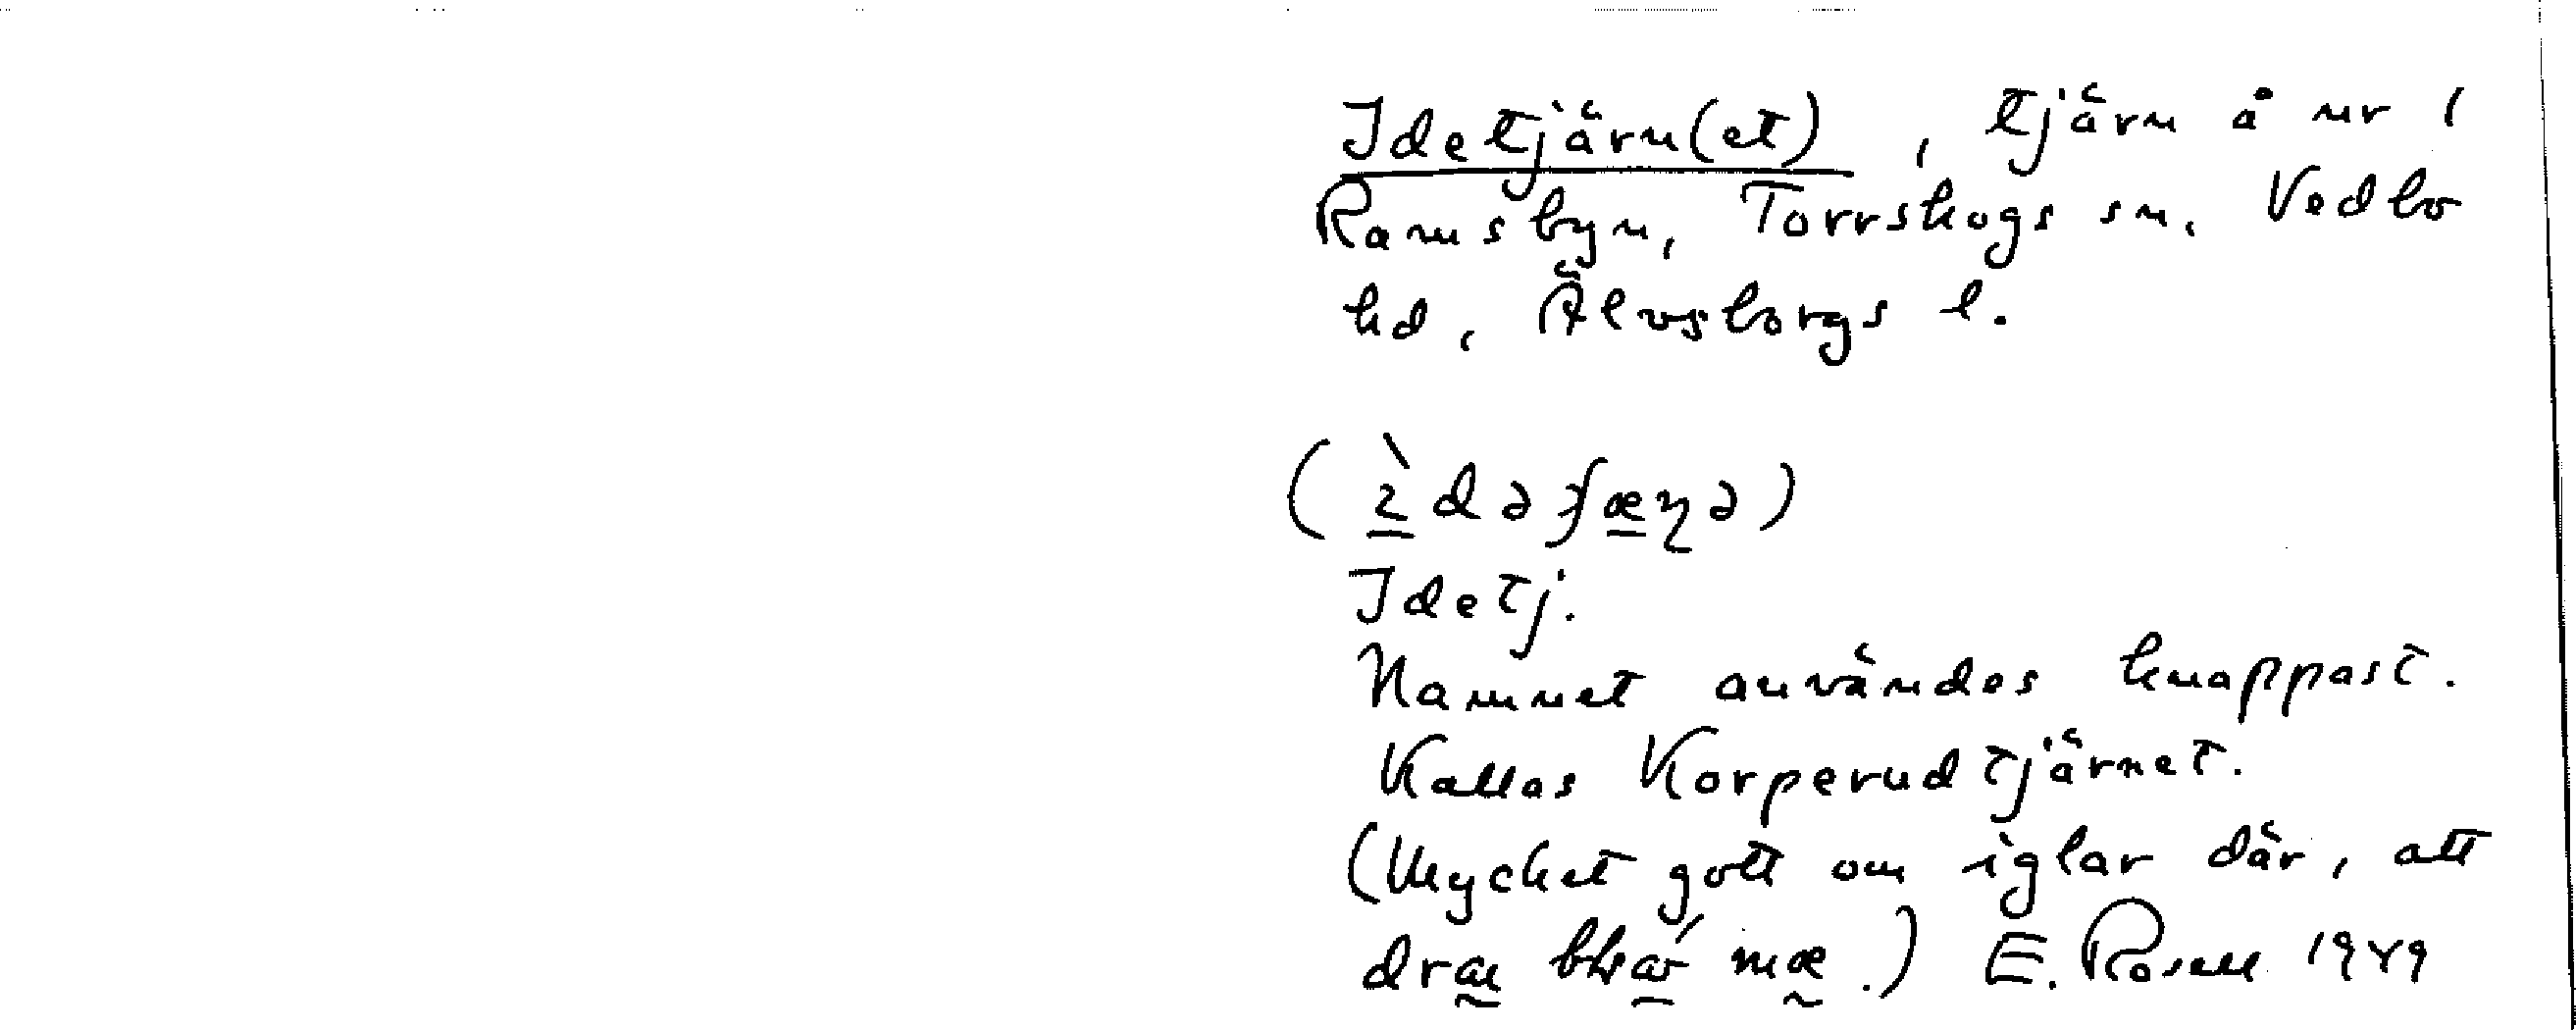 Idetjärn(et), tjärn å nr 1
Ramsbyn, Torrskogs sn. Vedbo
hd, Älvsborgs l.
Idetj.
Namnet användes knappast.
Kallas Korperudtjärnet.
(Mycket gott om iglar där, att
E. Rosell 1949